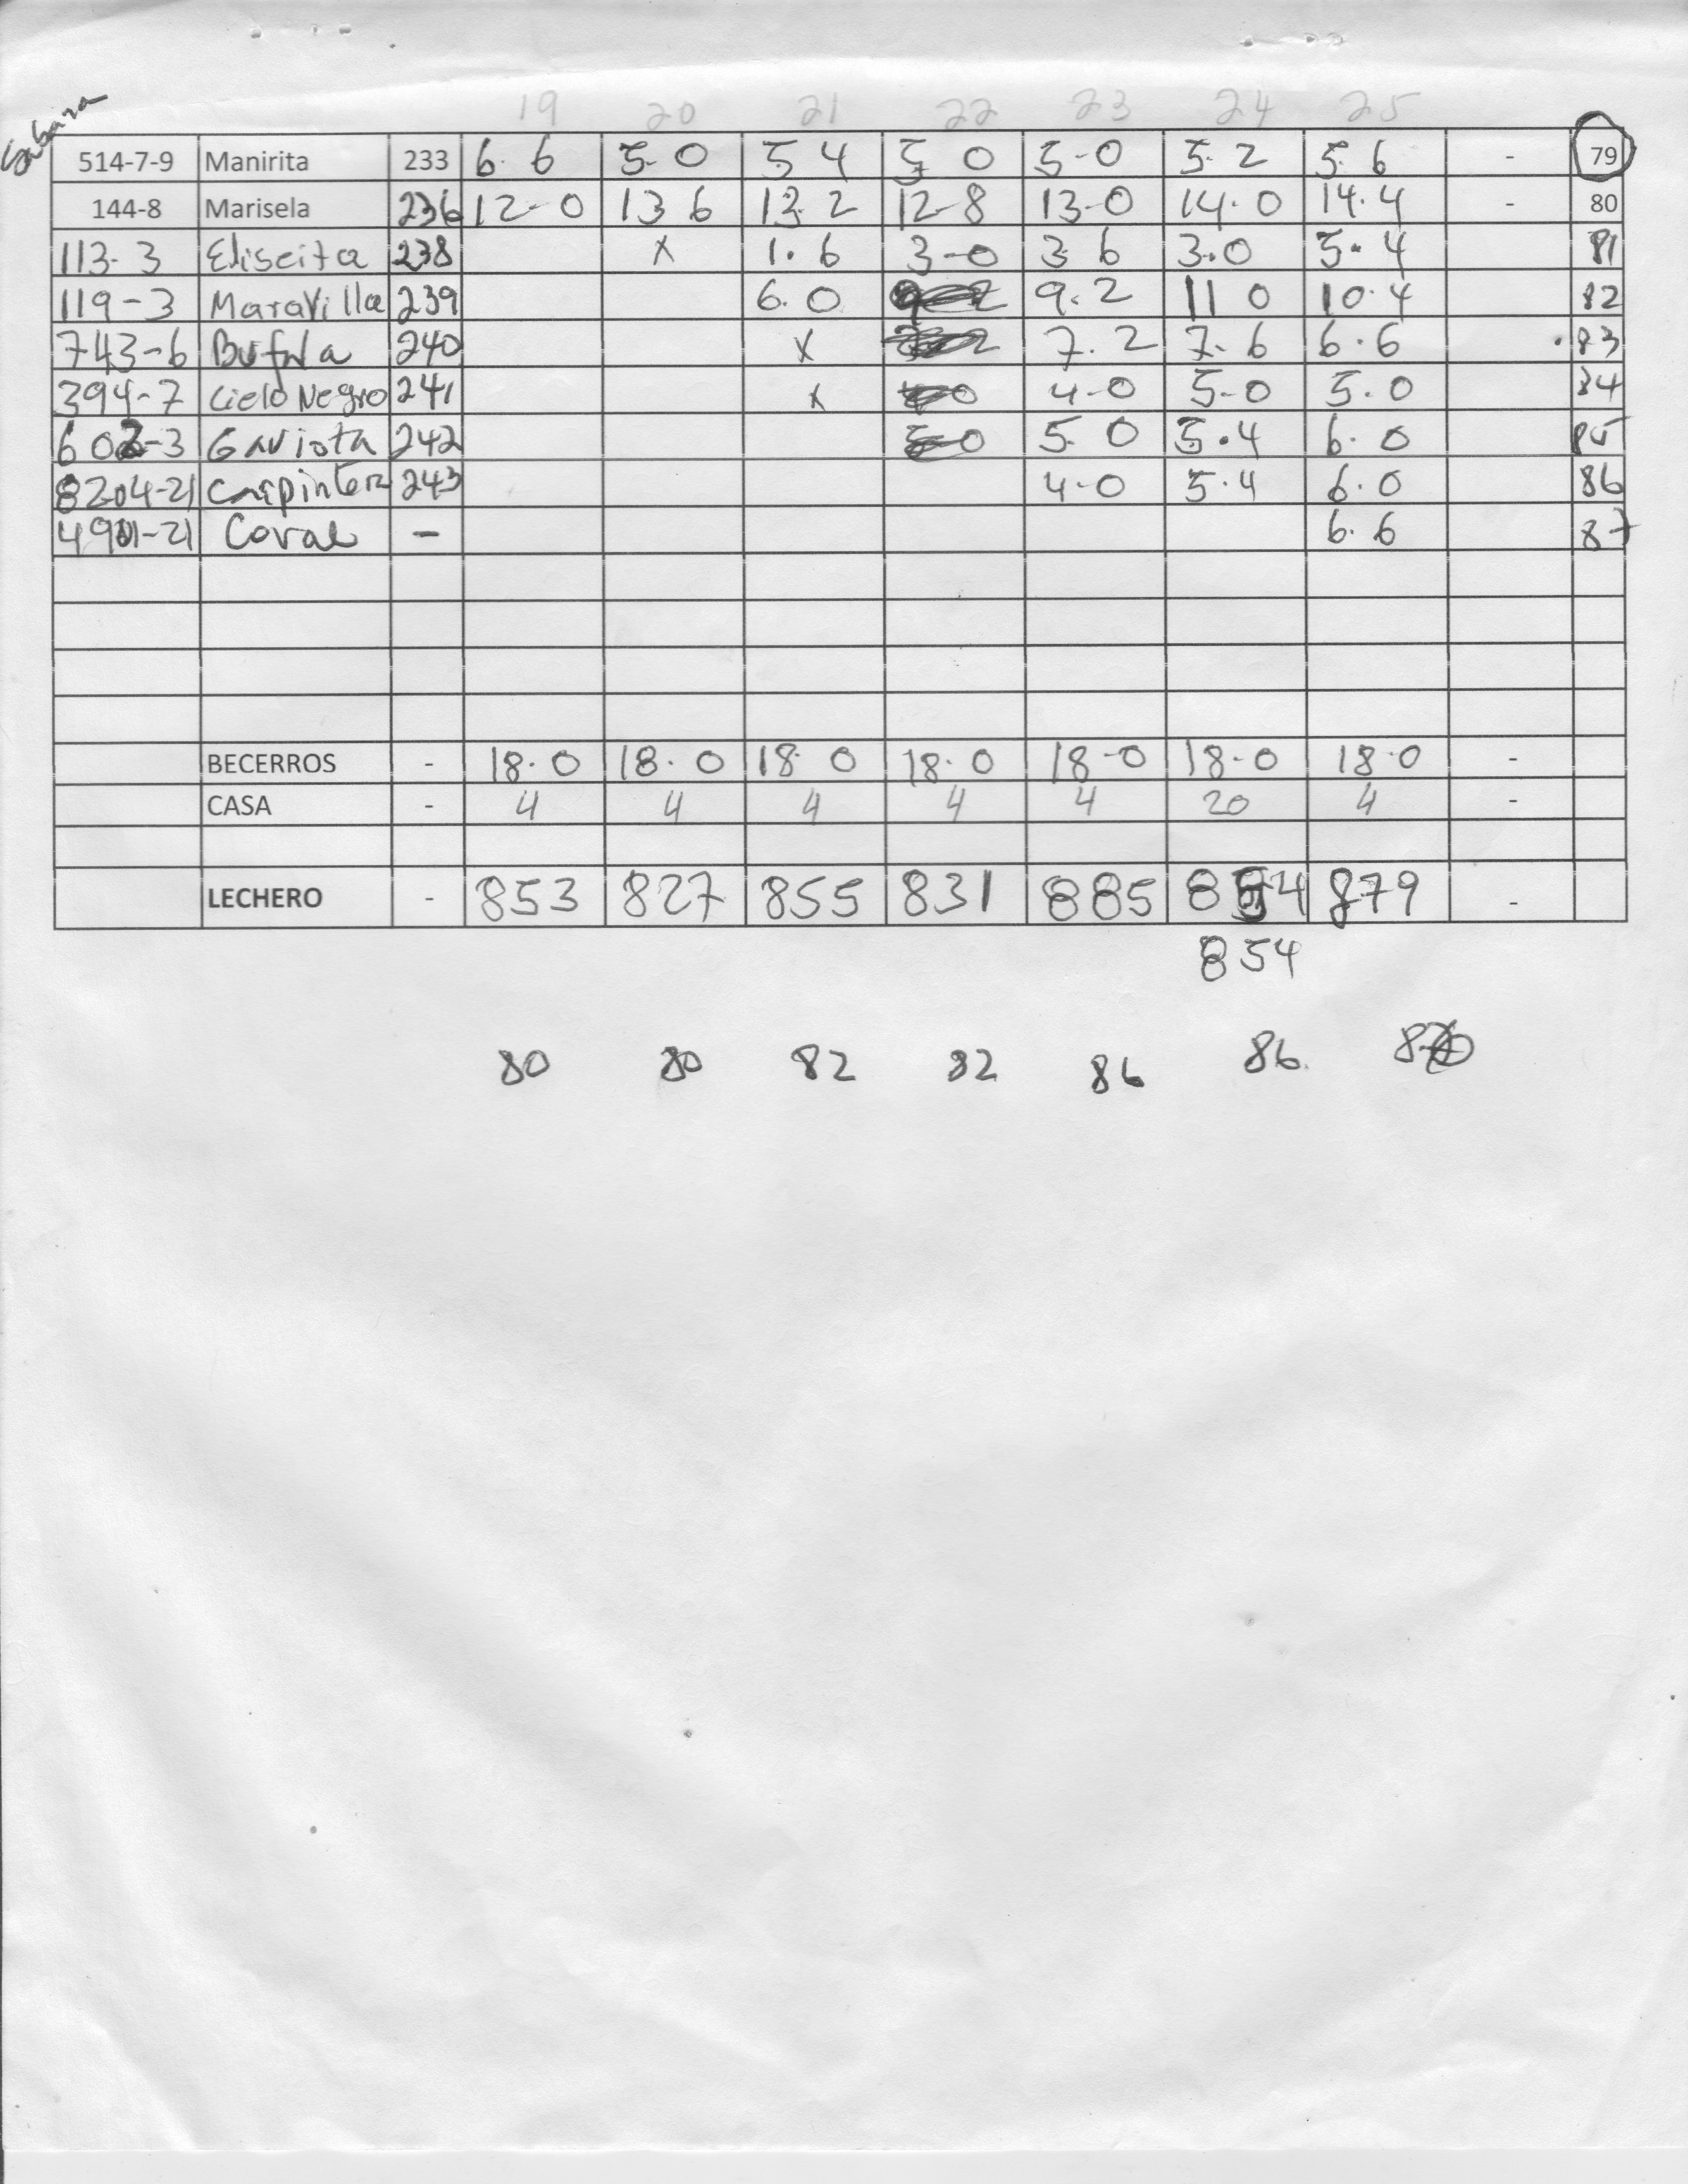 Sabana
19 20 21 22 23 24 25
514-7-9 Manirita 233 6.6 5-0 5 4 5 0 5-0 5.2 5.6 - 79
144-8 Marisela 236 12-0 13 6 13.2 12-8 13-0 14.0 14.4 - 80
113-3 Eliseita 238 x 1.6 3-0 3 6 3.0 5.4 81
119-3 Maravilla 239 6.0 9.2 11 0 10.4 82
743-6 Bufala 240 x 7.2 7.6 6.6 83
394-7 Cielo Negro 241 x 4-0 5-0 5.0 84
602-3 Gaviota 242 5.0 5.4 6.0 85
8204-21 Carpintera 243 4-0 5.4 6.0 86
4901-21 Coral - 6.6 87
BECERROS - 18.0 18.0 18 0 18.0 18-0 18-0 18.0 -
CASA - 4 4 4 4 4 20 4 -
LECHERO - 853 827 855 831 885 854 879 -
854
80 80 82 82 86 86.